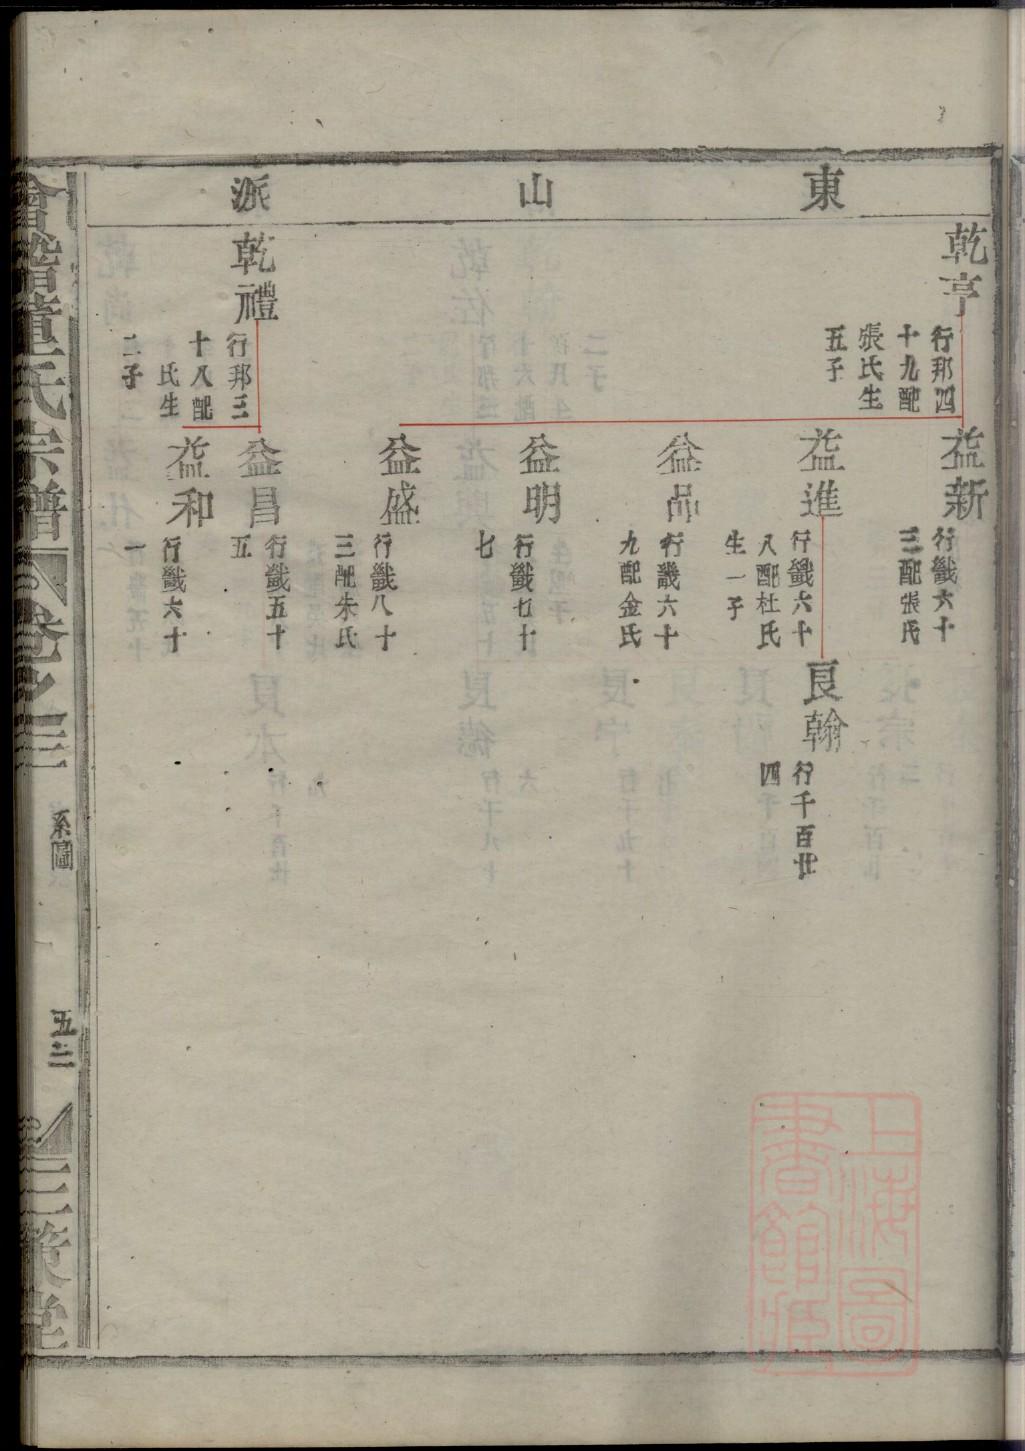 東山派
乾亨
行邦四
十九配
張氏生
五子
益新
行鐵六十
三配張氏
益進
行鐵六十
八配杜氏
生一子
良翰
行千百廿
四
益品
行鐵六十
九配金氏
益明
行鐵七十
七
益盛
行鐵八十
三配朱氏
乾禮
行邦三
十八配
氏生
二子
益昌
行鐵五十
五
益和
行鐵六十
一
會稽董氏宗譜
卷之三
系圖
五二
三策堂
上海圖
書館藏